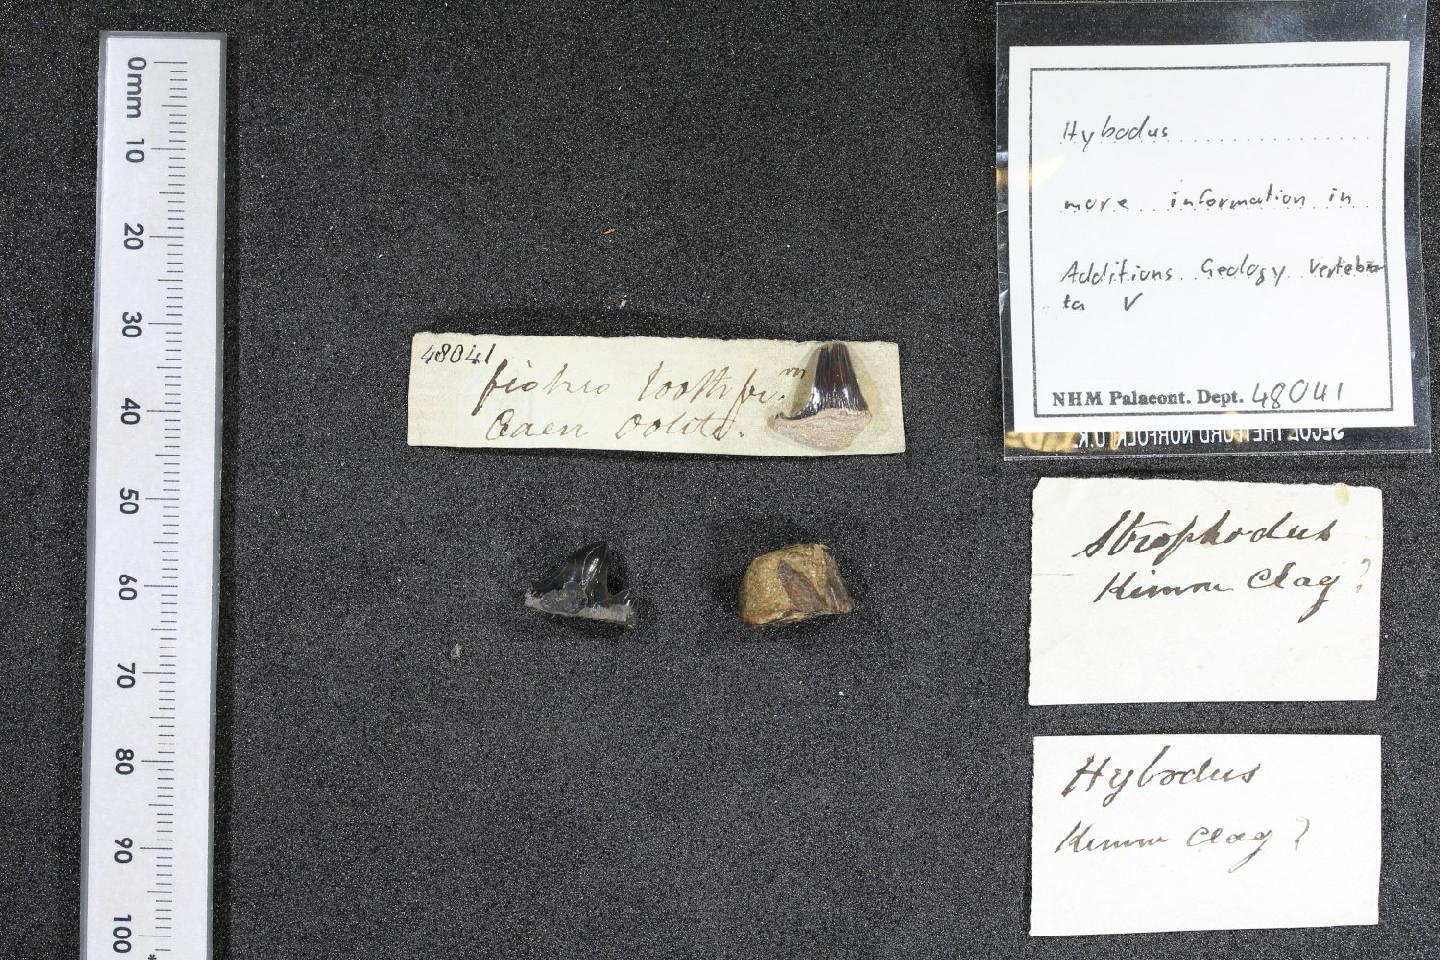 0mm
10
20
30
40
50
60
70
80
90
100
48041
fishes tooth fr.m
Caen Oolite.
Hybodus
more information in
Additions Geology Vertebra
ta V
NHM Palaeont. Dept. 48041
SECOL THETFORD NORFOLK U.K.
Strophodus
Kimm Clay ?
Hybodus
Kimm Clay ?